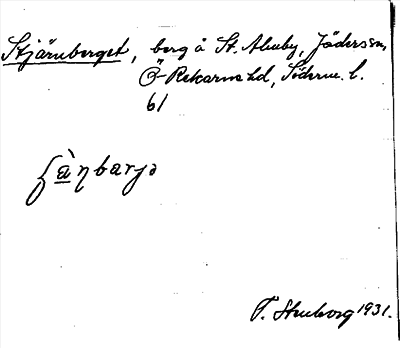 Stjärnberget, berg å St. Alneby, Jäders sn,
Ö-Rekarne hd, Söderm. l.
61
ʃä̀ŋbarjə
T. Stenborg 1931.